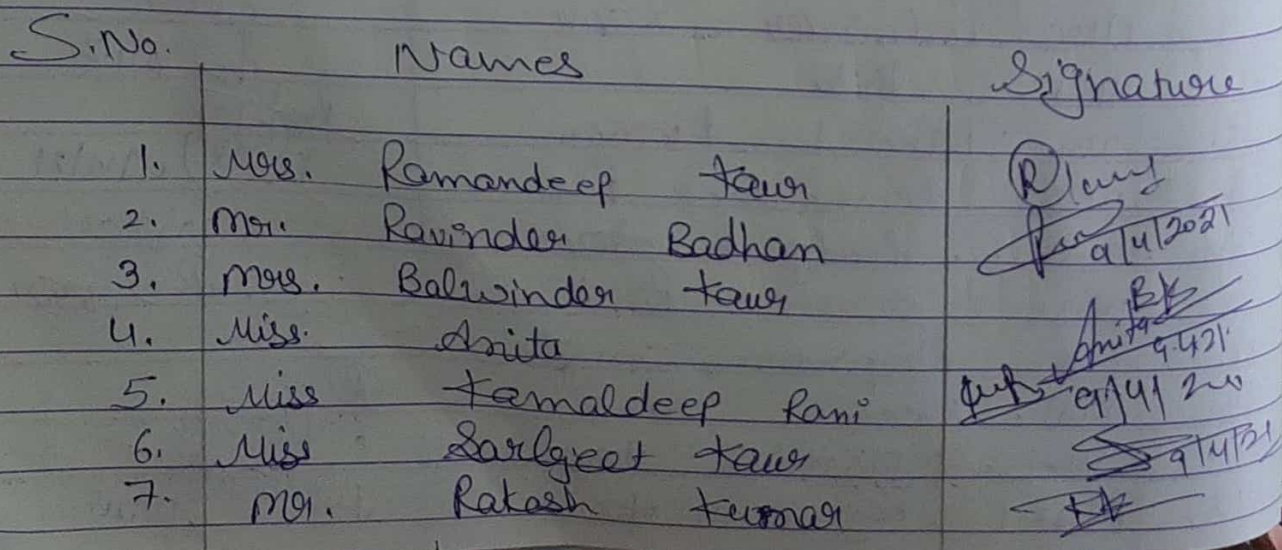 S.No. Names Signature
1. Mrs. Ramandeep Kaur
2. Mr. Ravinder Badhan 9/4/2021
3. Mrs. Balwinder Kaur BK
4. Miss. Anita Anita 9.4.21
5. Miss Kamaldeep Rani 9/4/
6. Miss Kaur 9/4/21
7. Mr. Rakash Kumar RK